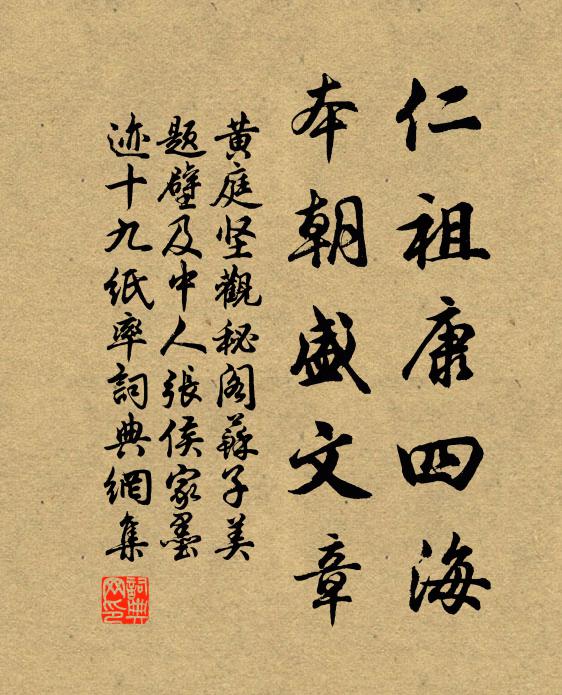 仁祖康四海
本朝盛文章
黄庭坚觀秘阁蘇子美
题壁及中人張侯家墨
迹十九紙率詞典網集
詞典网印